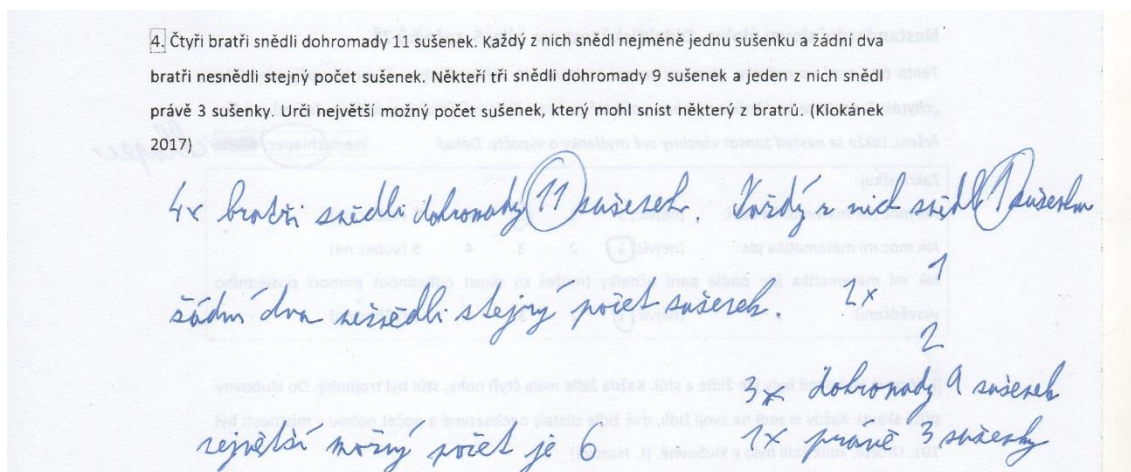 4. Čtyři bratři snědli dohromady 11 sušenek. Každý z nich snědl nejméně jednu sušenku a žádní dva
bratři nesnědli stejný počet sušenek. Někteří tři snědli dohromady 9 sušenek a jeden z nich snědl
právě 3 sušenky. Urči největší možný počet sušenek, který mohl sníst některý z bratrů. (Klokánek
2017)
4x bratři snědli dohromady 11 sušenek. Každý z nich snědl 1 sušenku
1
žádní dva nesnědli stejný počet sušenek. 1x
2
3x dohromady 9 sušenek
největší možný počet je 6 1x právě 3 sušenky